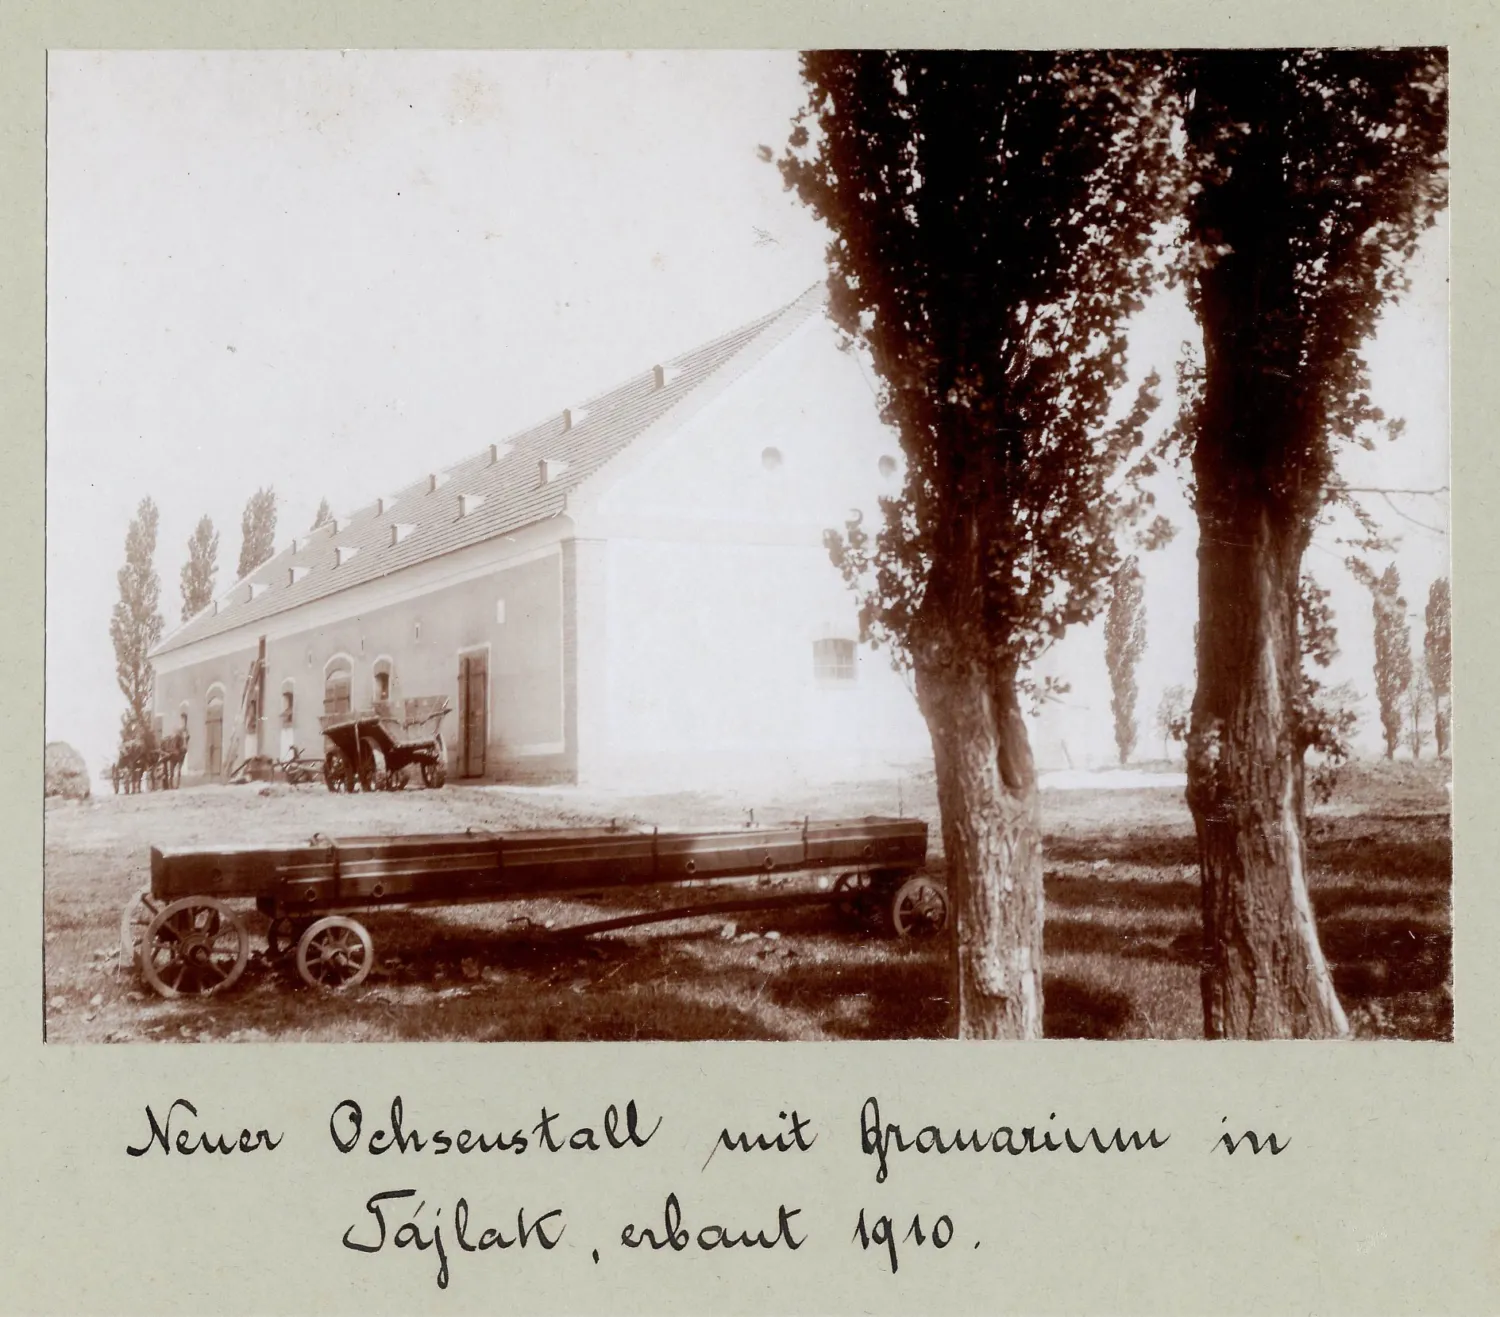 Neuer Ochsenstall mit Granarium in
Tájlak, erbaut 1910.